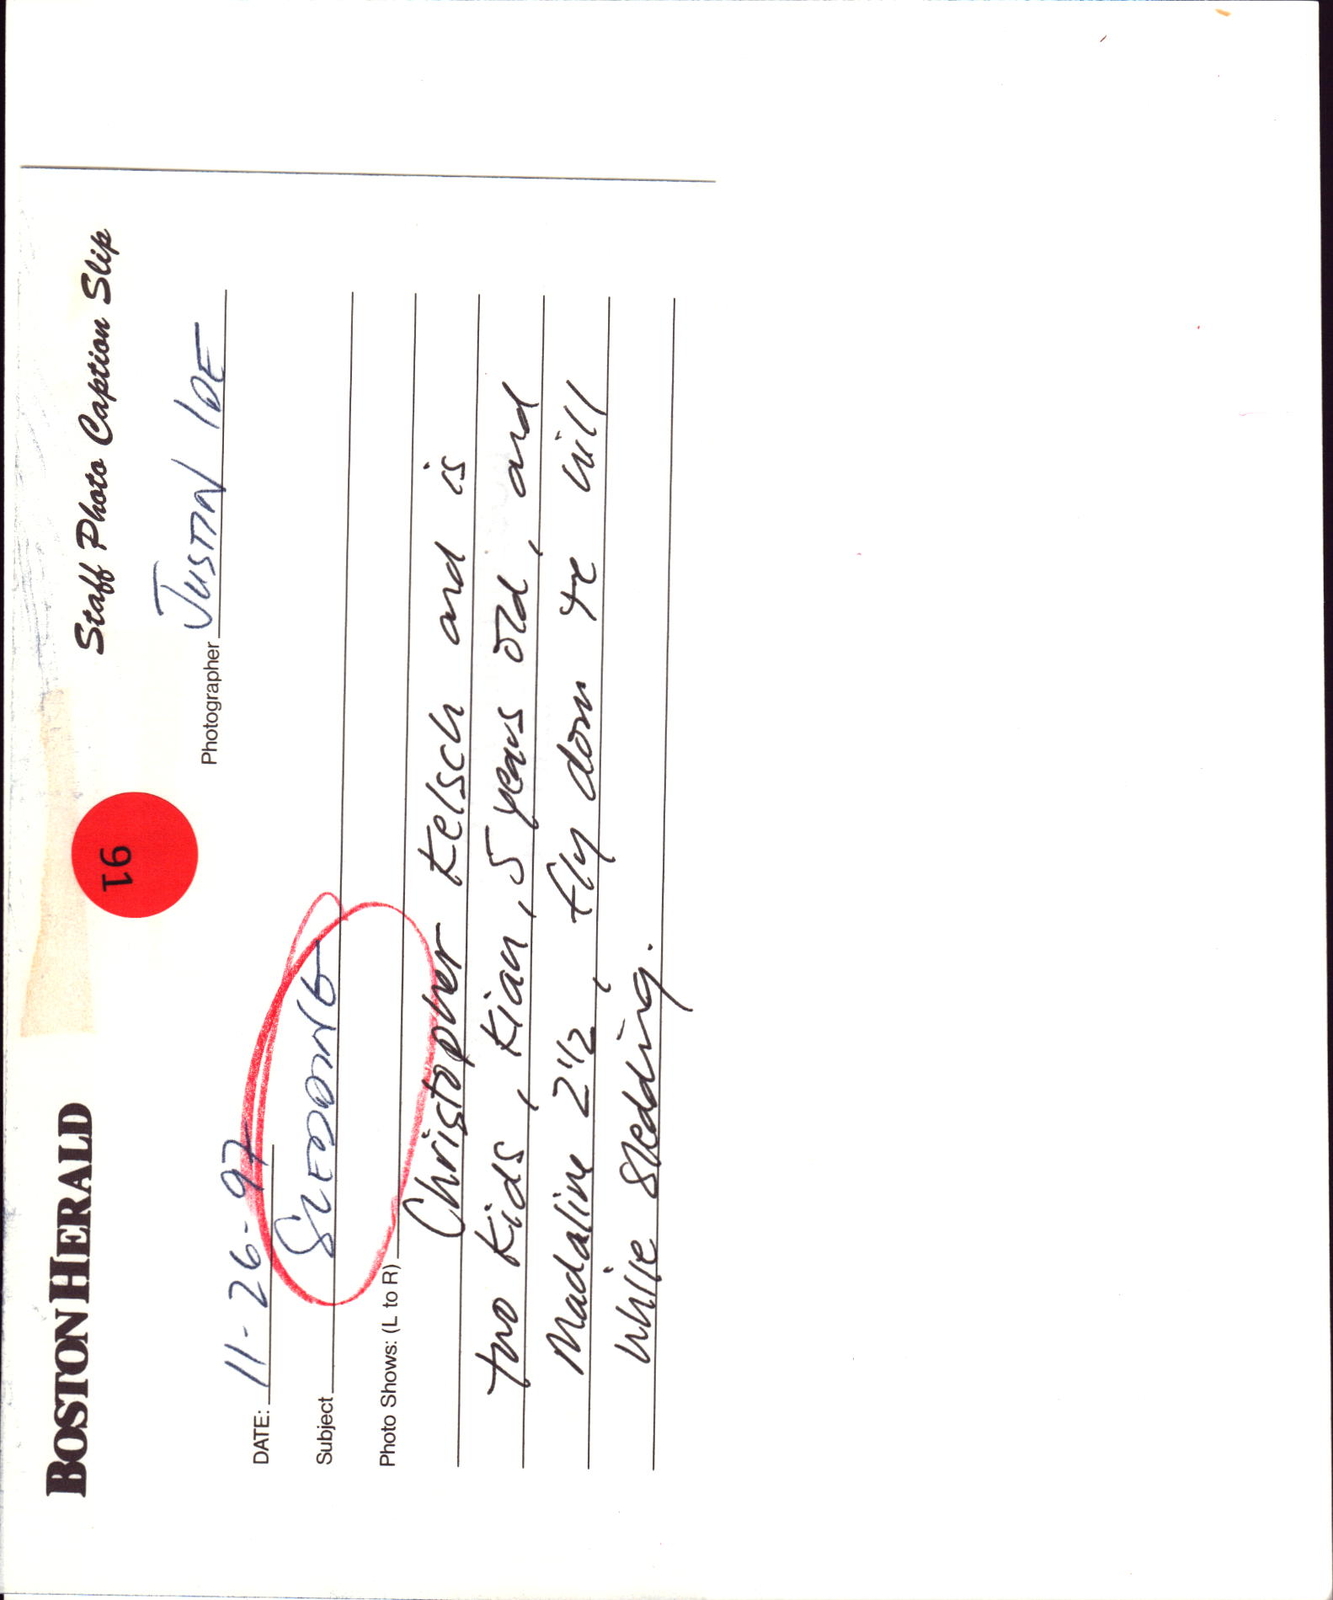 BOSTON HERALD
91
Staff Photo Caption Slip
Photographer JUSTIN IDE
DATE: 11-26-97
Subject SLEDDING
Photo Shows: (L to R)
Christopher Kelsch and is
two kids, Kian, 5 years old, and
Madaline 2 1/2, fly down the hill
while sledding.